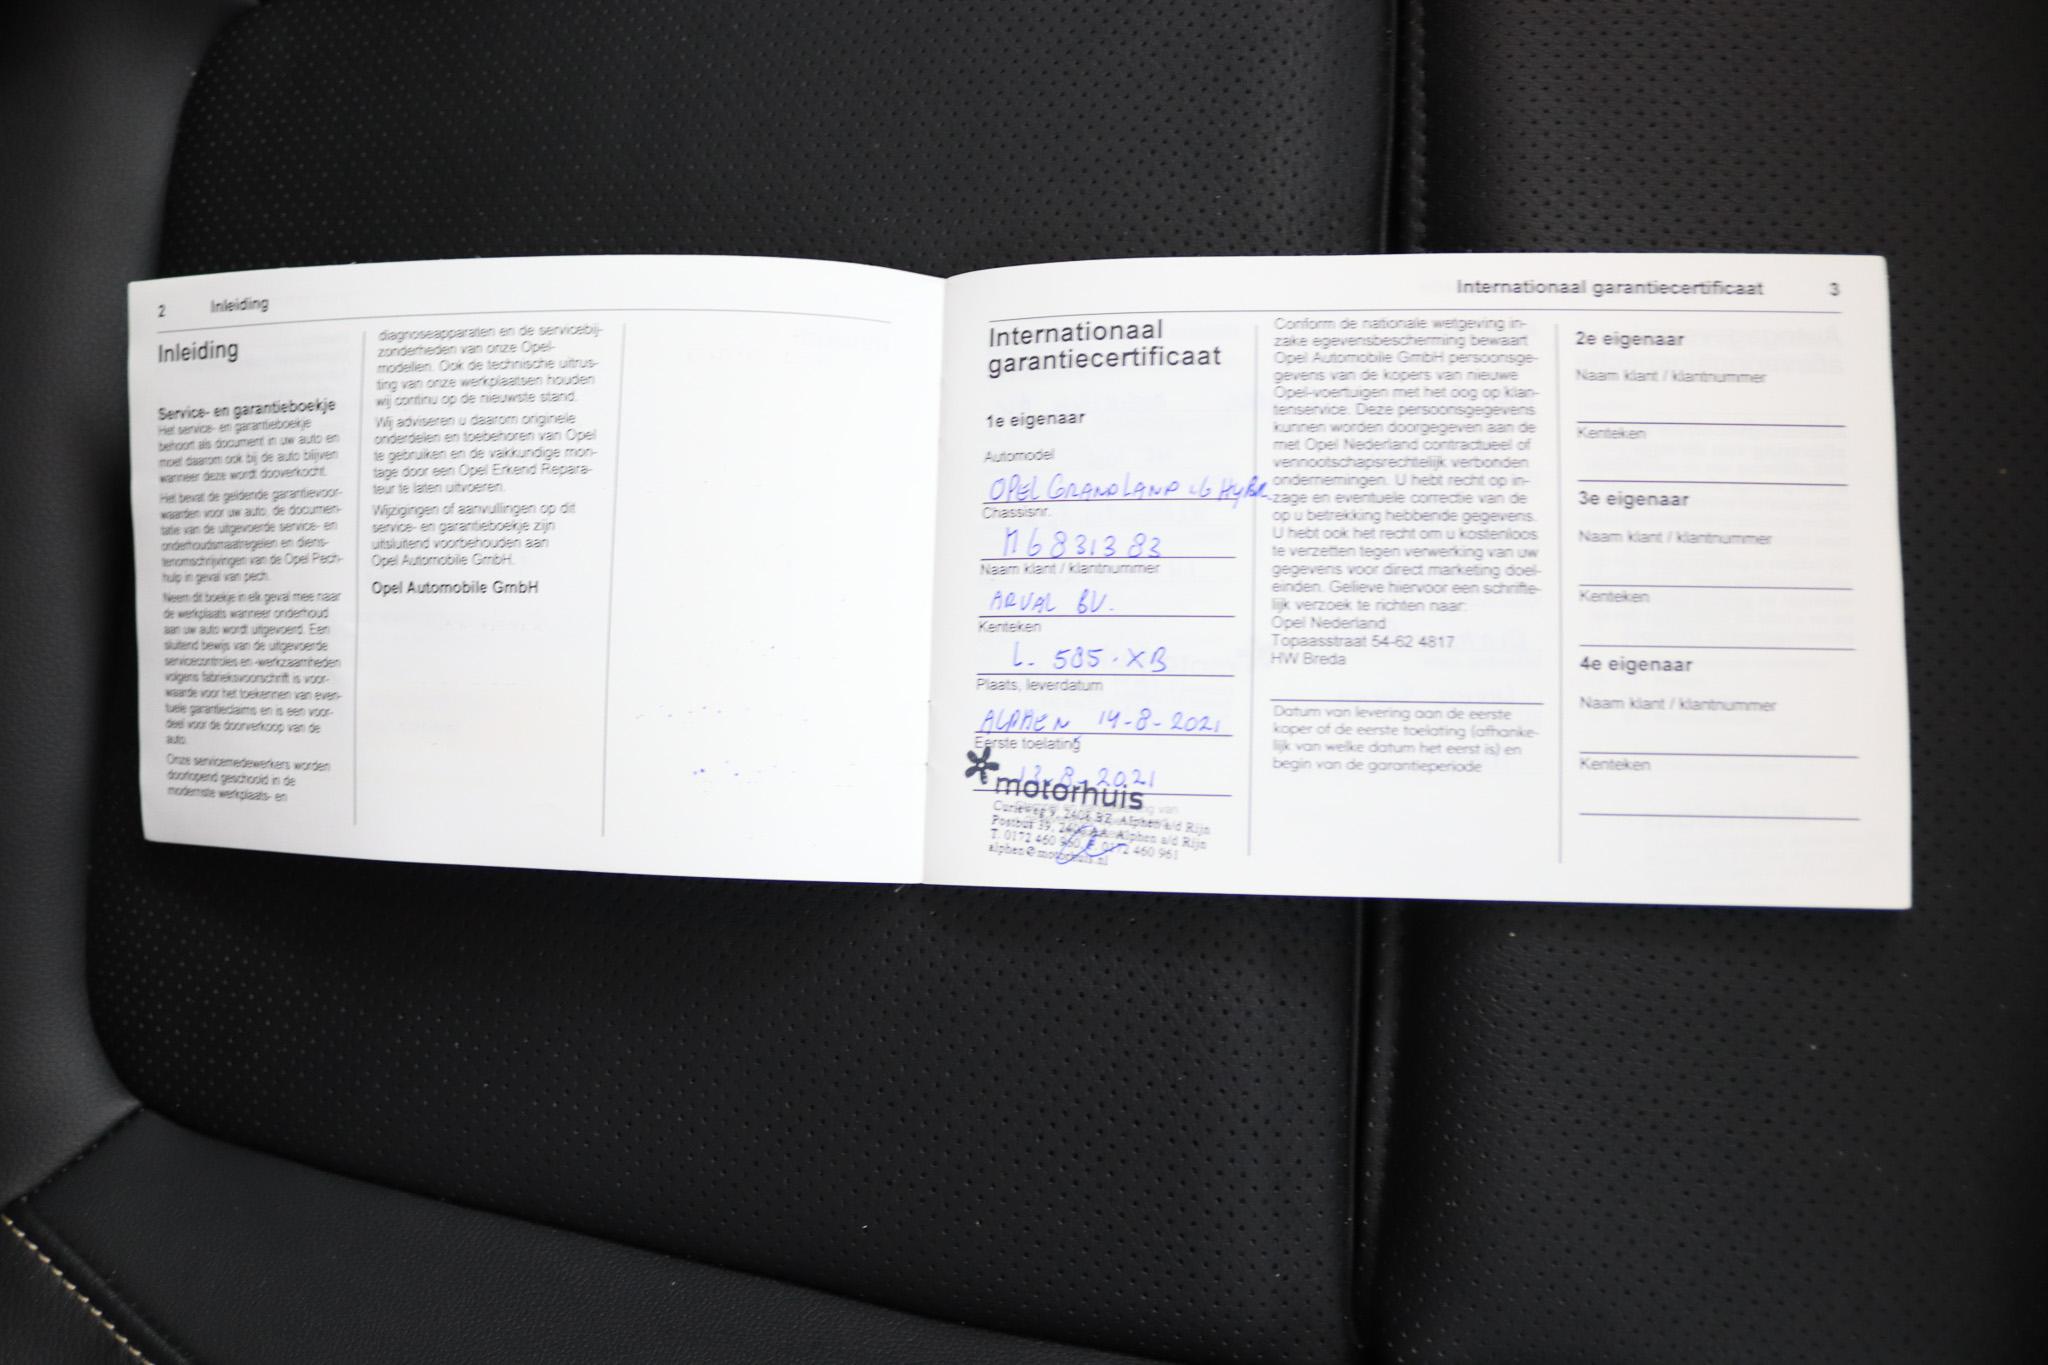 2 Inleiding
Inleiding
Service- en garantieboekje
Het service- en garantieboekje
behoort als document in uw auto en
moet daarom ook bij de auto blijven
wanneer deze wordt dooverkocht.
Het bevat de geldende garantievoor-
waarden voor uw auto, de documen-
tatie van de uitgevoerde service- en
onderhoudsmaatregelen en diens-
tenomschrijvingen van de Opel Pech-
hulp in geval van pech.
Neem dit boekje in elk geval mee naar
de werkplaats wanneer onderhoud
aan uw auto wordt uitgevoerd. Een
sluitend bewijs van de uitgevoerde
servicecontroles en -werkzaamheden
volgens fabrieksvoorschrift is voor-
waarde voor het toekennen van even-
tuele garantieclaims en is een voor-
deel voor de doorverkoop van de
auto.
Onze servicemedewerkers worden
doorlopend geschoold in de
modernste werkplaats- en
diagnoseapparaten en de servicebij-
zonderheden van onze Opel-
modellen. Ook de technische uitrus-
ting van onze werkplaatsen houden
wij continu op de nieuwste stand.
Wij adviseren u daarom originele
onderdelen en toebehoren van Opel
te gebruiken en de vakkundige mon-
tage door een Opel Erkend Repara-
teur te laten uitvoeren.
Wijzigingen of aanvullingen op dit
service- en garantieboekje zijn
uitsluitend voorbehouden aan
Opel Automobile GmbH.
Opel Automobile GmbH
Internationaal garantiecertificaat 3
Internationaal
garantiecertificaat
1e eigenaar
Automodel
OPEL GRANDLAND 1.6 HYBR.
Chassisnr.
M6831383
Naam klant / klantnummer
ARVAL BV.
Kenteken
L-585-XB
Plaats, leverdatum
ALPHEN 14-8-2021
Eerste toelating
13-8-2021
motorhuis
Curieweg 9, 2408 BZ Alphen a/d Rijn
Postbus 39, 2400 AA Alphen a/d Rijn
T. 0172 460 960, F. 0172 460 961
alphen@motorhuis.nl
Conform de nationale wetgeving in-
zake egevensbescherming bewaart
Opel Automobile GmbH persoonsge-
gevens van de kopers van nieuwe
Opel-voertuigen met het oog op klan-
tenservice. Deze persoonsgegevens
kunnen worden doorgegeven aan de
met Opel Nederland contractueel of
vennootschapsrechtelijk verbonden
ondernemingen. U hebt recht op in-
zage en eventuele correctie van de
op u betrekking hebbende gegevens.
U hebt ook het recht om u kostenloos
te verzetten tegen verwerking van uw
gegevens voor direct marketing doel-
einden. Gelieve hiervoor een schrifte-
lijk verzoek te richten naar:
Opel Nederland
Topaasstraat 54-62 4817
HW Breda
Datum van levering aan de eerste
koper of de eerste toelating (afhanke-
lijk van welke datum het eerst is) en
begin van de garantieperiode
2e eigenaar
Naam klant / klantnummer
Kenteken
3e eigenaar
Naam klant / klantnummer
Kenteken
4e eigenaar
Naam klant / klantnummer
Kenteken